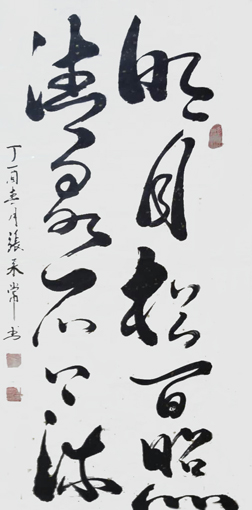 明月松間照
清泉石上流
丁酉春月張承常书